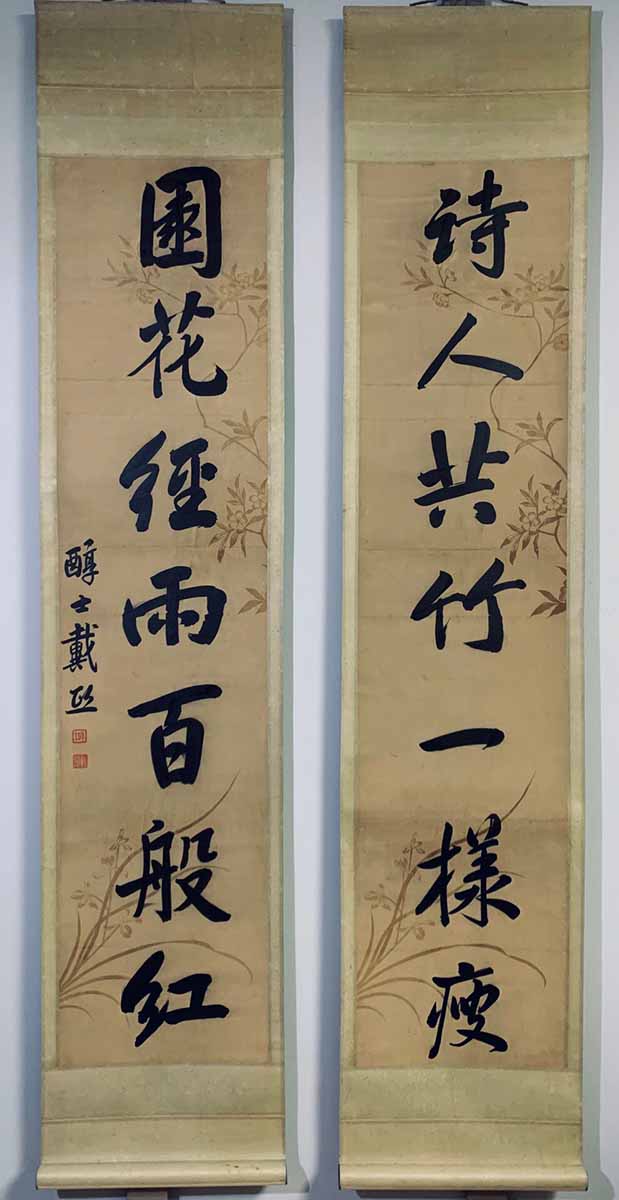 詩人共竹一樣瘦
園花經雨百般紅
醇士戴熙